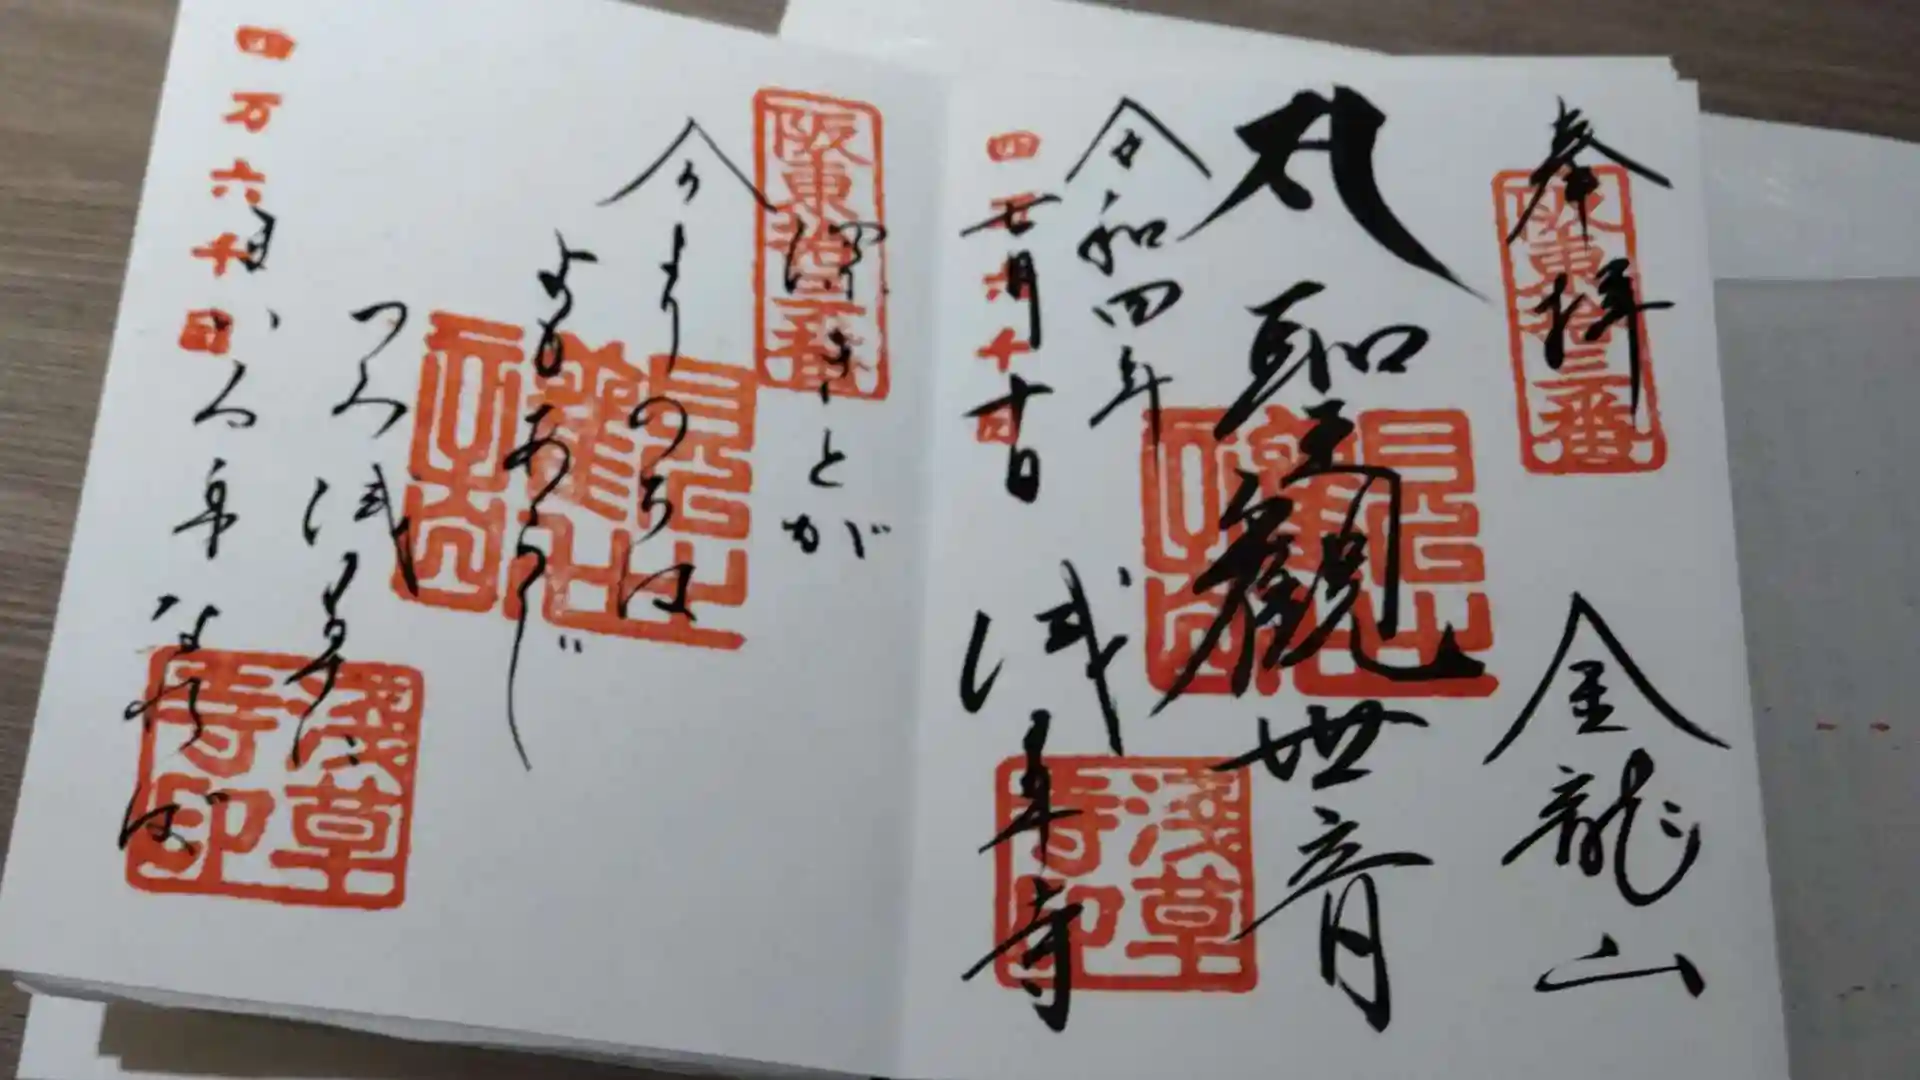 奉拝
阪東拾三番
金龍山
聖観世音
令和四年
七月十日
四万六千日
浅草寺
淺草寺印
阪東拾三番
深きとが
今よりのちは
よもあらじ
つみ浅草に
まいる身なれば
四万六千日
淺草寺印